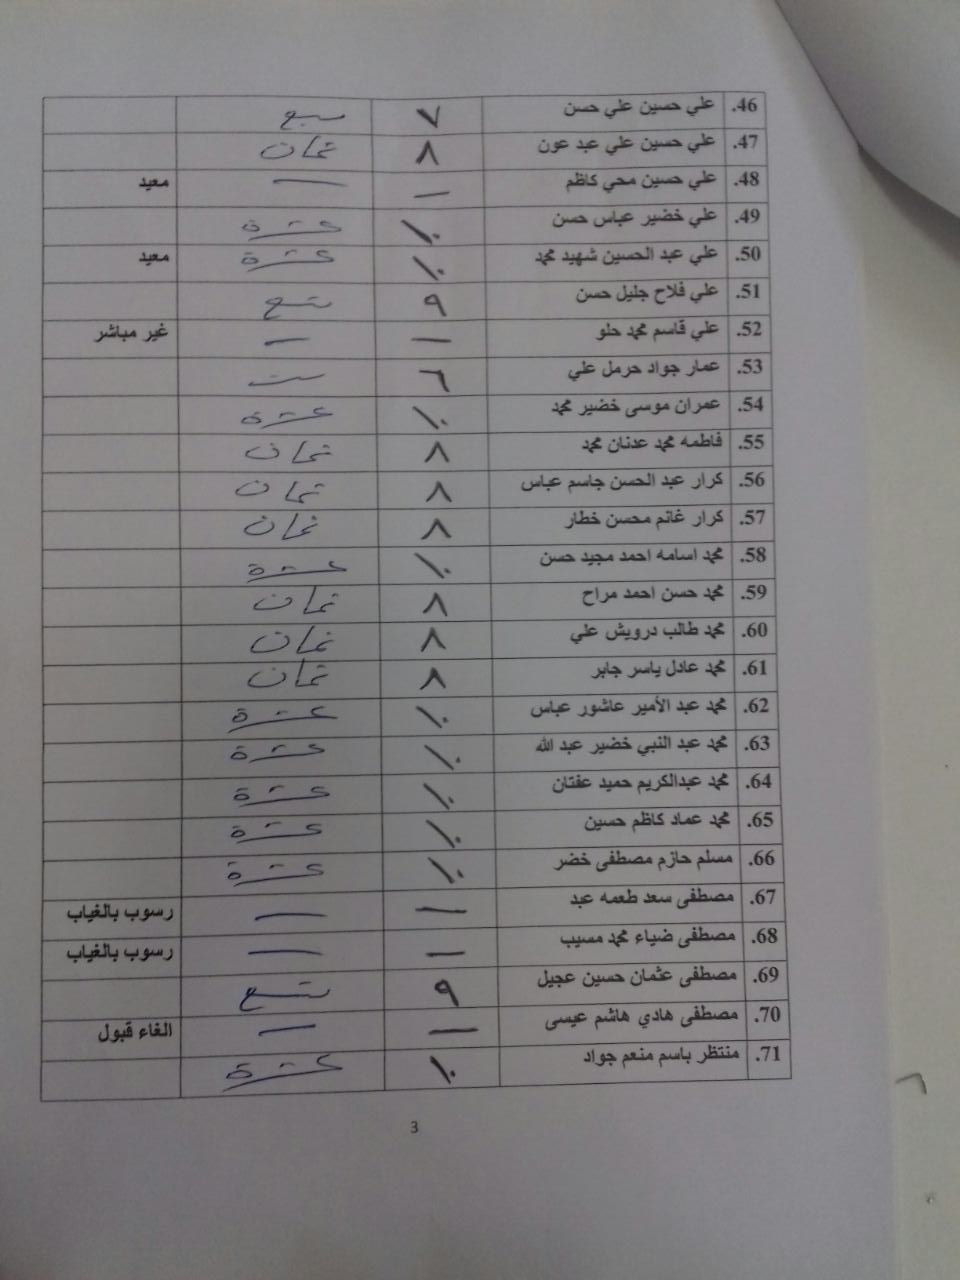 46. علي حسين علي حسن ٧ سبع
47. علي حسين علي عبد عون ٨ ثمان
48. علي حسين محي كاظم — — معيد
49. علي خضير عباس حسن ١٠ عشرة
50. علي عبد الحسين شهيد محمد ١٠ عشرة معيد
51. علي فلاح جليل حسن ٩ تسع
52. علي قاسم محمد حلو — — غير مباشر
53. عمار جواد حرمل علي ٦ ست
54. عمران موسى خضير محمد ١٠ عشرة
55. فاطمه محمد عدنان محمد ٨ ثمان
56. كرار عبد الحسن جاسم عباس ٨ ثمان
57. كرار غانم محسن خطار ٨ ثمان
58. محمد اسامه احمد مجيد حسن ١٠ عشرة
59. محمد حسن احمد مراح ٨ ثمان
60. محمد طالب درويش علي ٨ ثمان
61. محمد عادل ياسر جابر ٨ ثمان
62. محمد عبد الأمير عاشور عباس ١٠ عشرة
63. محمد عبد النبي خضير عبد الله ١٠ عشرة
64. محمد عبدالكريم حميد عفتان ١٠ عشرة
65. محمد عماد كاظم حسين ١٠ عشرة
66. مسلم حازم مصطفى خضر ١٠ عشرة
67. مصطفى سعد طعمه عبد — — رسوب بالغياب
68. مصطفى ضياء محمد مسيب — — رسوب بالغياب
69. مصطفى عثمان حسين عجيل ٩ تسع
70. مصطفى هادي هاشم عيسى — — الغاء قبول
71. منتظر باسم منعم جواد ١٠ عشرة
3